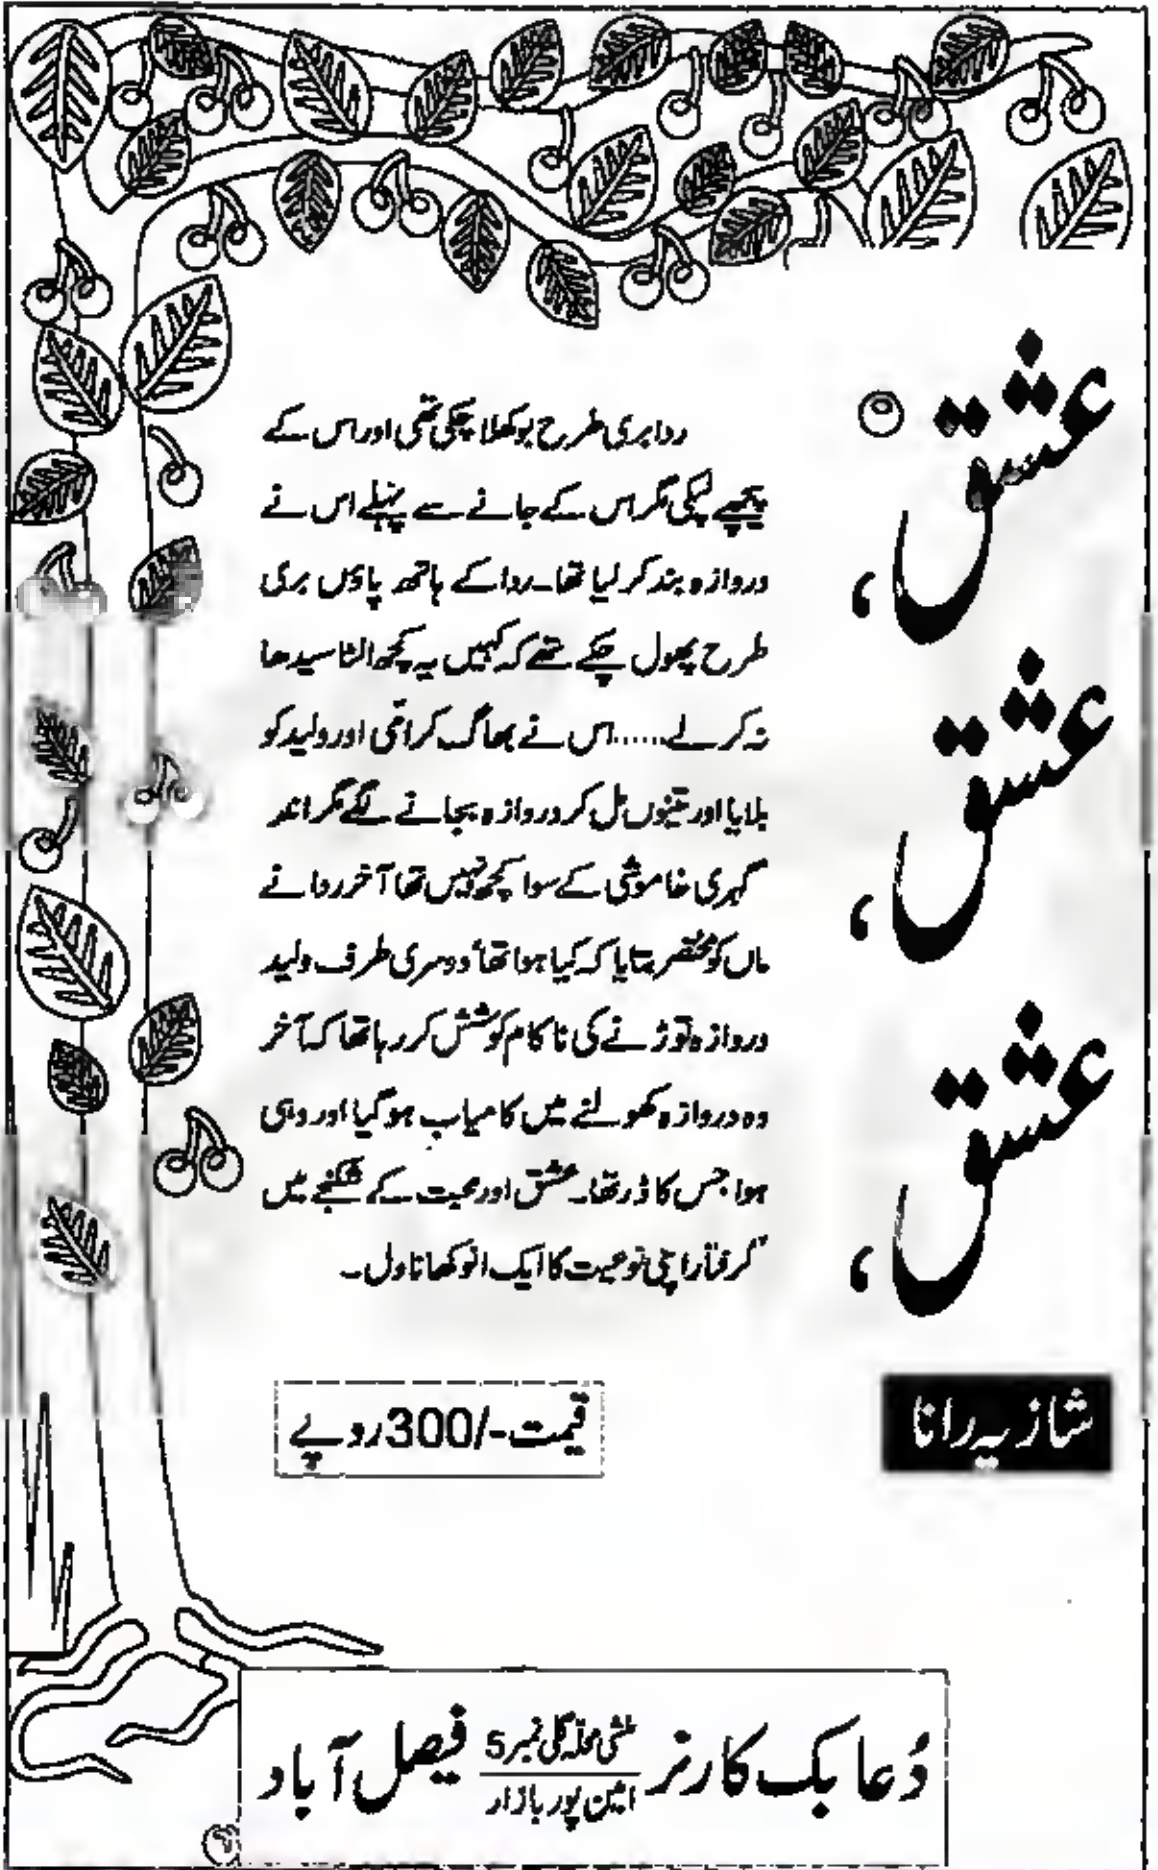 عشق،
عشق،
عشق،
شازیہ رانا
ردا بری طرح بوکھلا چکی تھی اور اس کے
پیچھے لپکی مگر اس کے جانے سے پہلے اس نے
دروازہ بند کر لیا تھا۔ ردا کے ہاتھ پاؤں بری
طرح پھول چکے تھے کہ کہیں یہ کچھ الٹا سیدھا
نہ کر لے......اس نے بھاگ کر امّی اور ولید کو
بلایا اور تینوں مل کر دروازہ بجانے لگے مگر اندر
گہری خاموشی کے سوا کچھ نہیں تھا آخر ردا نے
ماں کو مختصر بتایا کہ کیا ہوا تھا‘ دوسری طرف ولید
دروازہ توڑنے کی ناکام کوشش کر رہا تھا کہ آخر
وہ دروازہ کھولنے میں کامیاب ہو گیا اور وہی
ہوا جس کا ڈر تھا۔ عشق اور محبت کے شکنجے میں
گرفتار اپنی نوعیت کا ایک انوکھا ناول۔
قیمت -/300 روپے
دُعا بک کارنر محلہ گلی نمبر 5 فیصل آباد
امین پور بازار